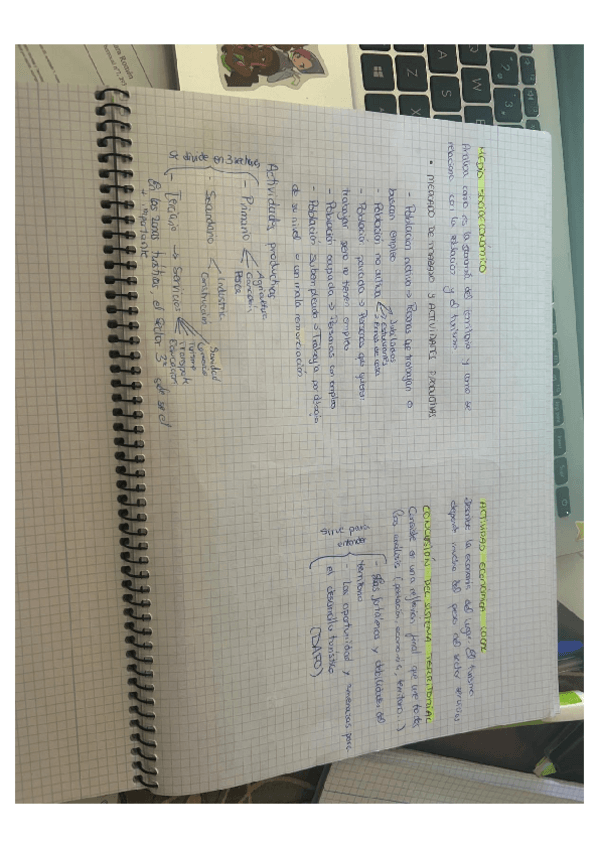 MEDIO SOCIOECONÓMICO
Analiza como es la economía del territorio y como se
relaciona con la población y el turismo.
• MERCADO DE TRABAJO Y ACTIVIDADES PRODUCTIVAS
- Población activa → Personas que trabajan o
buscan empleo
- Población no activa
Jubilados
Estudiantes
Amas de casa
- Población parada → Personas que quieren
trabajar pero no tienen empleo
- Población ocupada → Personas con empleo
- Población subempleada → Trabaja por debajo
de su nivel o con mala remuneración
Actividades productivas
se divide en 3 sectores
- Primario
Agricultura
Ganadería
Pesca
- Secundario
Industria
Construcción
- Terciario → Servicios
Sanidad
Comercio
Turismo
Transporte
Educación
En las zonas turística, el sector 3º suele ser el
+ importante
ACTIVIDAD ECONÓMICA LOCAL
Describe la economía del lugar. El turismo
depende mucho del peso del sector servicios
CONCLUSIÓN DEL SISTEMA TERRITORIAL
Consiste en una reflexión final que une todos
los análisis (población, economía, territorio...)
- Las fortalezas y debilidades del
territorio
- Las oportunidad y amenazas para
el desarrollo turístico
(DAFO)